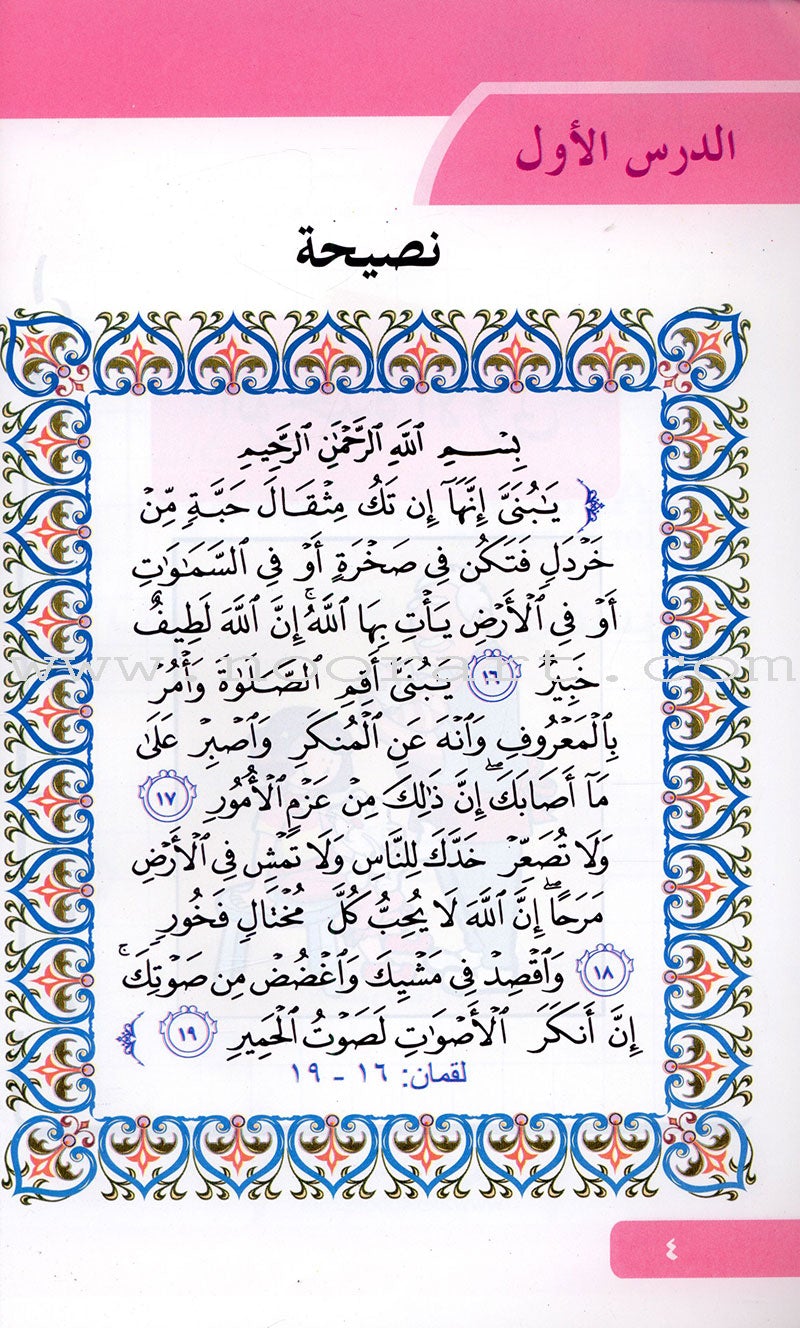 الدرس الأول
نصيحة
بِسْمِ اللَّهِ الرَّحْمَٰنِ الرَّحِيمِ
﴿ يَٰبُنَىَّ إِنَّهَآ إِن تَكُ مِثْقَالَ حَبَّةٍ مِّنْ
خَرْدَلٍ فَتَكُن فِى صَخْرَةٍ أَوْ فِى السَّمَٰوَٰتِ
أَوْ فِى الْأَرْضِ يَأْتِ بِهَا اللَّهُ ۚ إِنَّ اللَّهَ لَطِيفٌ
www.noorart.com
خَبِيرٌ ١٦ يَٰبُنَىَّ أَقِمِ الصَّلَوٰةَ وَأْمُرْ
بِالْمَعْرُوفِ وَانْهَ عَنِ الْمُنكَرِ وَاصْبِرْ عَلَىٰ
مَآ أَصَابَكَ ۖ إِنَّ ذَٰلِكَ مِنْ عَزْمِ الْأُمُورِ ١٧
وَلَا تُصَعِّرْ خَدَّكَ لِلنَّاسِ وَلَا تَمْشِ فِى الْأَرْضِ
مَرَحًا ۖ إِنَّ اللَّهَ لَا يُحِبُّ كُلَّ مُخْتَالٍ فَخُورٍ
١٨ وَاقْصِدْ فِى مَشْيِكَ وَاغْضُضْ مِن صَوْتِكَ ۚ
إِنَّ أَنكَرَ الْأَصْوَٰتِ لَصَوْتُ الْحَمِيرِ ١٩ ﴾
لقمان: ١٦ - ١٩
٤